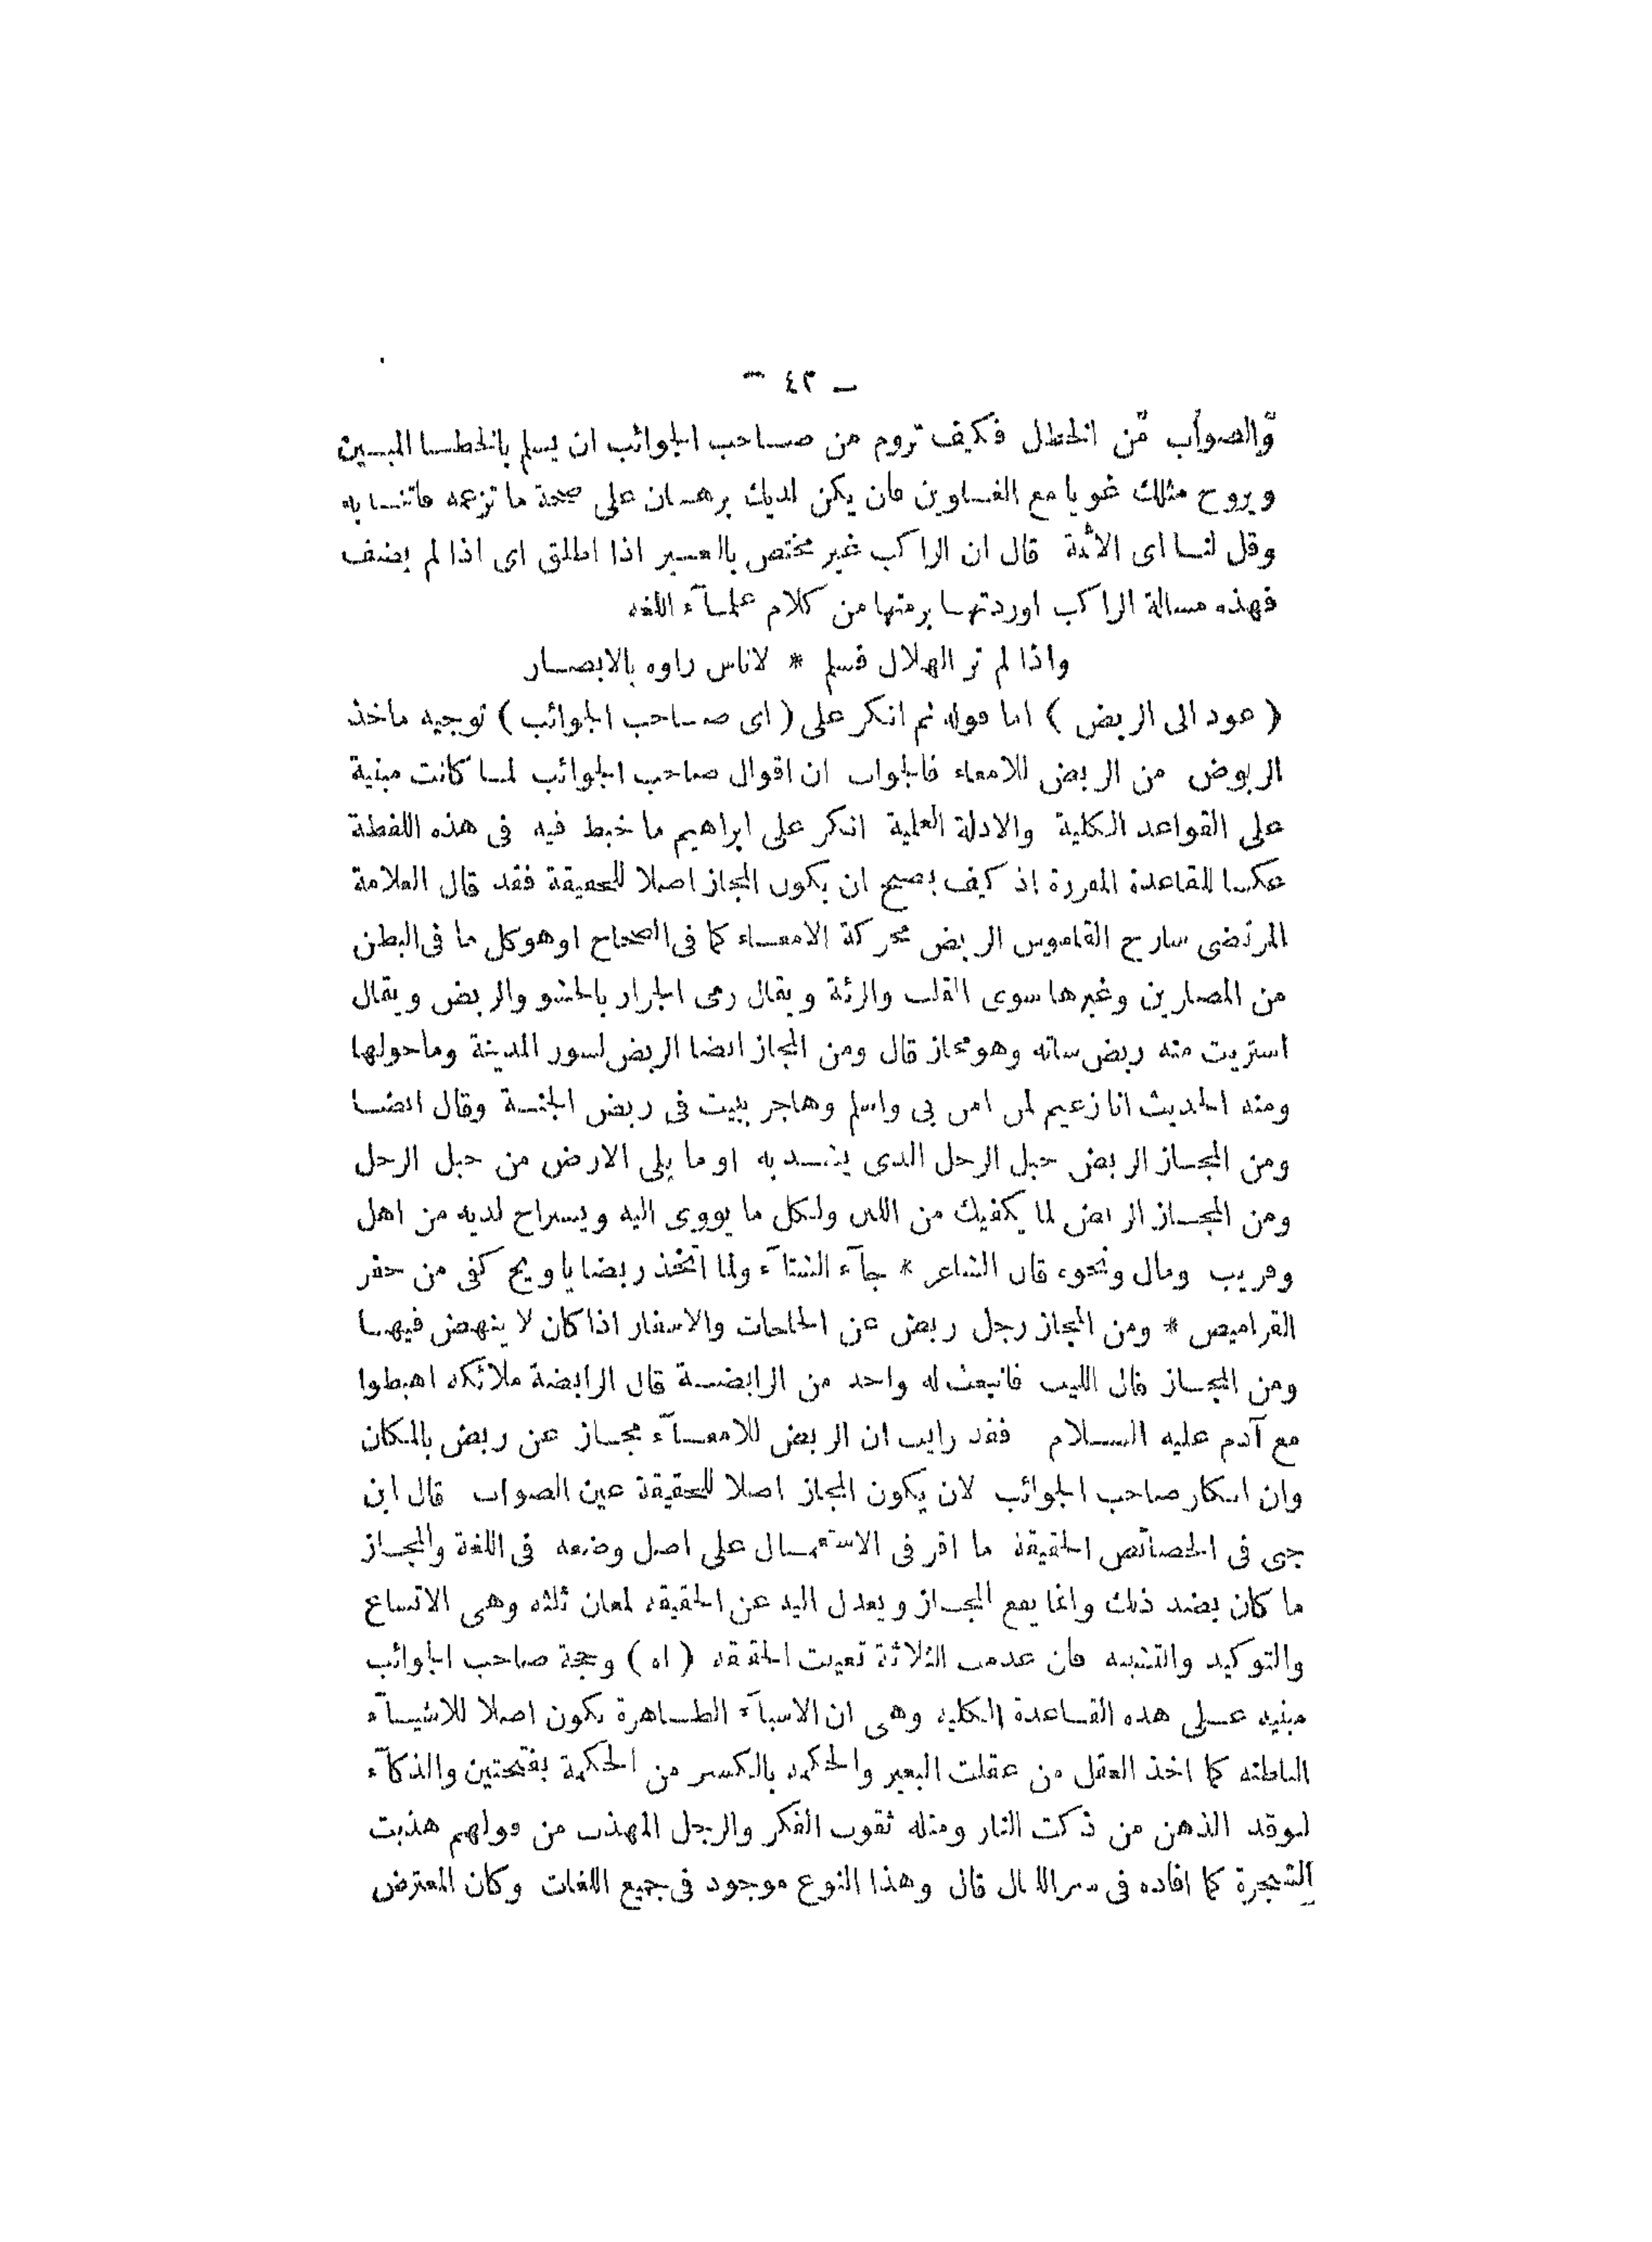 – ٤٢ –
والصواب من الخطل فكيف تروم من صاحب الجوائب ان يسلم بالخطا المبين
ويروح مثلك غويا مع الغاوين فان يكن لديك برهان على صحة ما تزعمه فاتنا به
وقل لنا اى الائمة قال ان الراكب غير مختص بالبعير اذا اطلق اى اذا لم يضف
فهذه مسالة الراكب اوردتها برمتها من كلام علمآء اللغه
واذا لم تر الهلال فسلم * لاناس راوه بالابصار
( عود الى الربض ) اما قوله ثم انكر على ( اى صاحب الجوائب ) توجيه ماخذ
الربوض من الربض للامعاء فالجواب ان اقوال صاحب الجوائب لما كانت مبنية
على القواعد الكلية والادلة العلمية انكر على ابراهيم ما خبط فيه فى هذه اللفظة
عكسا للقاعدة المقررة اذ كيف يصح ان يكون المجاز اصلا للحقيقة فقد قال العلامة
المرتضى شارح القاموس الربض محركة الامعاء كما فى الصحاح او هو كل ما فى البطن
من المصارين وغيرها سوى القلب والرئة ويقال رمى الجرار بالحشو والربض ويقال
اشتريت منه ربض شاته وهو مجاز قال ومن المجاز ايضا الربض لسور المدينة وما حولها
ومنه الحديث انا زعيم لمن امن بى واسلم وهاجر ببيت فى ربض الجنة وقال ايضا
ومن المجاز الربض حبل الرحل الذى يشد به او ما يلى الارض من حبل الرحل
ومن المجاز الربض لما يكفيك من اللبن ولكل ما يووى اليه ويستراح لديه من اهل
وقريب ومال ونحوه قال الشاعر * جآء الشتآء ولما اتخذ ربضا يا ويح كفى من حفر
القراميص * ومن المجاز رجل ربض عن الحاجات والاسفار اذا كان لا ينهض فيها
ومن المجاز قال الليث فانبعث له واحد من الرابضة قال الرابضة ملائكه اهبطوا
مع آدم عليه السلام فقد رايت ان الربض للامعآء مجاز عن ربض بالمكان
وان انكار صاحب الجوائب لان يكون المجاز اصلا للحقيقة عين الصواب قال ابن
جنى فى الخصائص الحقيقة ما اقر فى الاستعمال على اصل وضعه فى اللغة والمجاز
ما كان بضد ذلك وانما يقع المجاز ويعدل اليه عن الحقيقه لمعان ثلثه وهى الاتساع
والتوكيد والتشبيه فان عدمت الثلاثة تعينت الحقيقه ( اه ) وحجة صاحب الجوائب
مبنيه على هذه القاعدة الكليه وهى ان الاشيآء الظاهرة تكون اصلا للاشيآء
الباطنه كما اخذ العقل من عقلت البعير والحكمه بالكسر من الحكمة بفتحتين والذكآء
لتوقد الذهن من ذكت النار ومثله ثقوب الفكر والرجل المهذب من قولهم هذبت
الشجرة كما افاده فى سر الليال قال وهذا النوع موجود فى جميع اللغات وكان المعترض